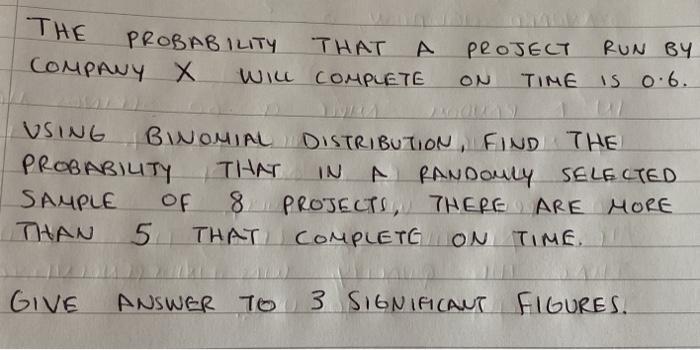 THE PROBABILITY THAT A PROJECT RUN BY
COMPANY X WILL COMPLETE ON TIME IS 0.6.
USING BINOMIAL DISTRIBUTION, FIND THE
PROBABILITY THAT IN A RANDOMLY SELECTED
SAMPLE OF 8 PROJECTS, THERE ARE MORE
THAN 5 THAT COMPLETE ON TIME.
GIVE ANSWER TO 3 SIGNIFICANT FIGURES.